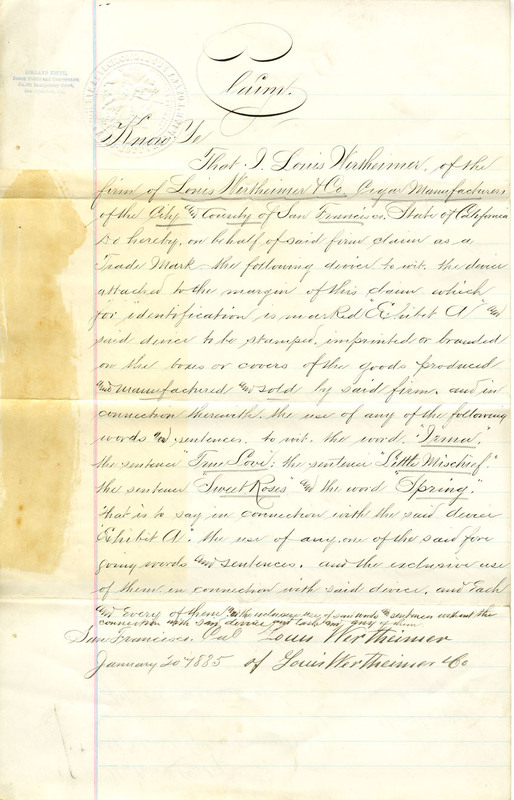 Claim.
Know Ye
That I, Louis Wertheimer, of the
firm of Louis Wertheimer & Co Cigar Manufacturers
of the City and County of San Francisco, State of California
do hereby, on behalf of said firm claim as a
Trade Mark the following device to wit. the device
attached to the margin of this claim which
for identification is marked "Exhibit A" and
said device to be stamped, imprinted or branded
on the boxes or covers of the goods produced
and manufactured and sold by said firm. and in
connection therewith, the use of any of the following
words and sentences, to wit, the word, "Irma,"
the sentence "True Love; the sentence "Little Mischief."
the sentence "Sweet Roses" and the word "Spring".
that is to say in connection with the said device
Exhibit A". the use of any one of the said fore
going words and sentences, and the exclusive use
of them, in connection with said device, and Each
and Every of them, the exclusive use of said words and sentences without the
connection with said device and each and any of them
San Francisco, Cal Louis Wertheimer
January 20 1885 of Louis Wertheimer & Co